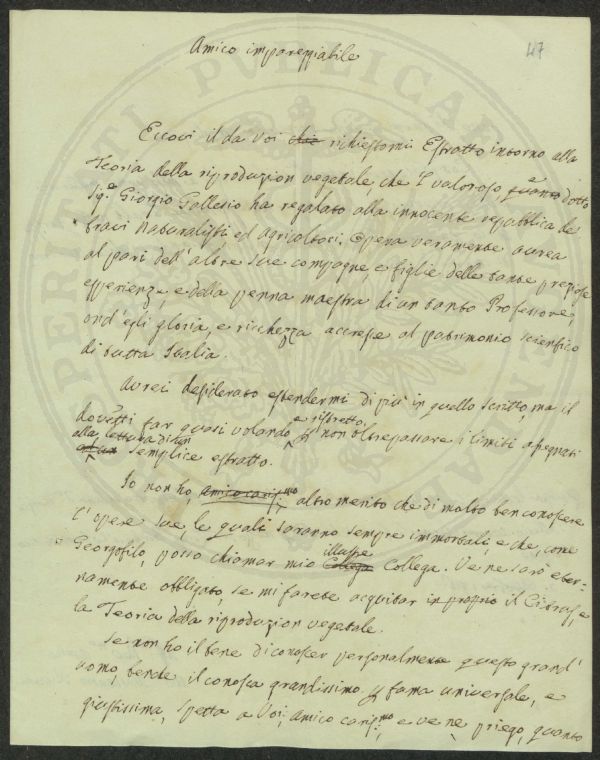 47
Amico impareggiabile
Eccovi il da Voi che richiestomi Estratto intorno alla
Teoria della riproduzion vegetale, che l' valoroso, quanto dotto
Sig.e Giorgio Gallesio ha regalato alla innocente repubblica de
bravi Naturalisti, ed Agricoltori. Opera veramente aurea
al pari dell' altre sue compagne, e figlie delle tante preziose
esperienze, e della penna maestra di un tanto Professore,
ond' egli gloria, e ricchezza accresce al patrimonio scientifico
di tutta Italia.
Avrei desiderato estendermi di più in quello scritto, ma il
dovetti far quasi volando, e ristretto p non oltrepassare i limiti assegnati
alla lettura di un semplice estratto.
Io non ho, amico cariss.mo altro merito che di molto ben conoscere
l' opere sue, le quali saranno sempre immortali, e che, come
Georgofilo, posso chiamar mio illustre Collega Collega. Ve ne sarò eter-
namente obbligato, se mi farete acquistar in proprio il Citrus, e
la Teoria della riproduzion vegetale.
Se non ho il bene di conoscer personalmente questo grand'
uomo, benche il conosca grandissimo p fama universale, e
giustissima, spetta a Voi, amico cariss.mo, e ve nè priego, quanto
PERITATI PUBLICAE